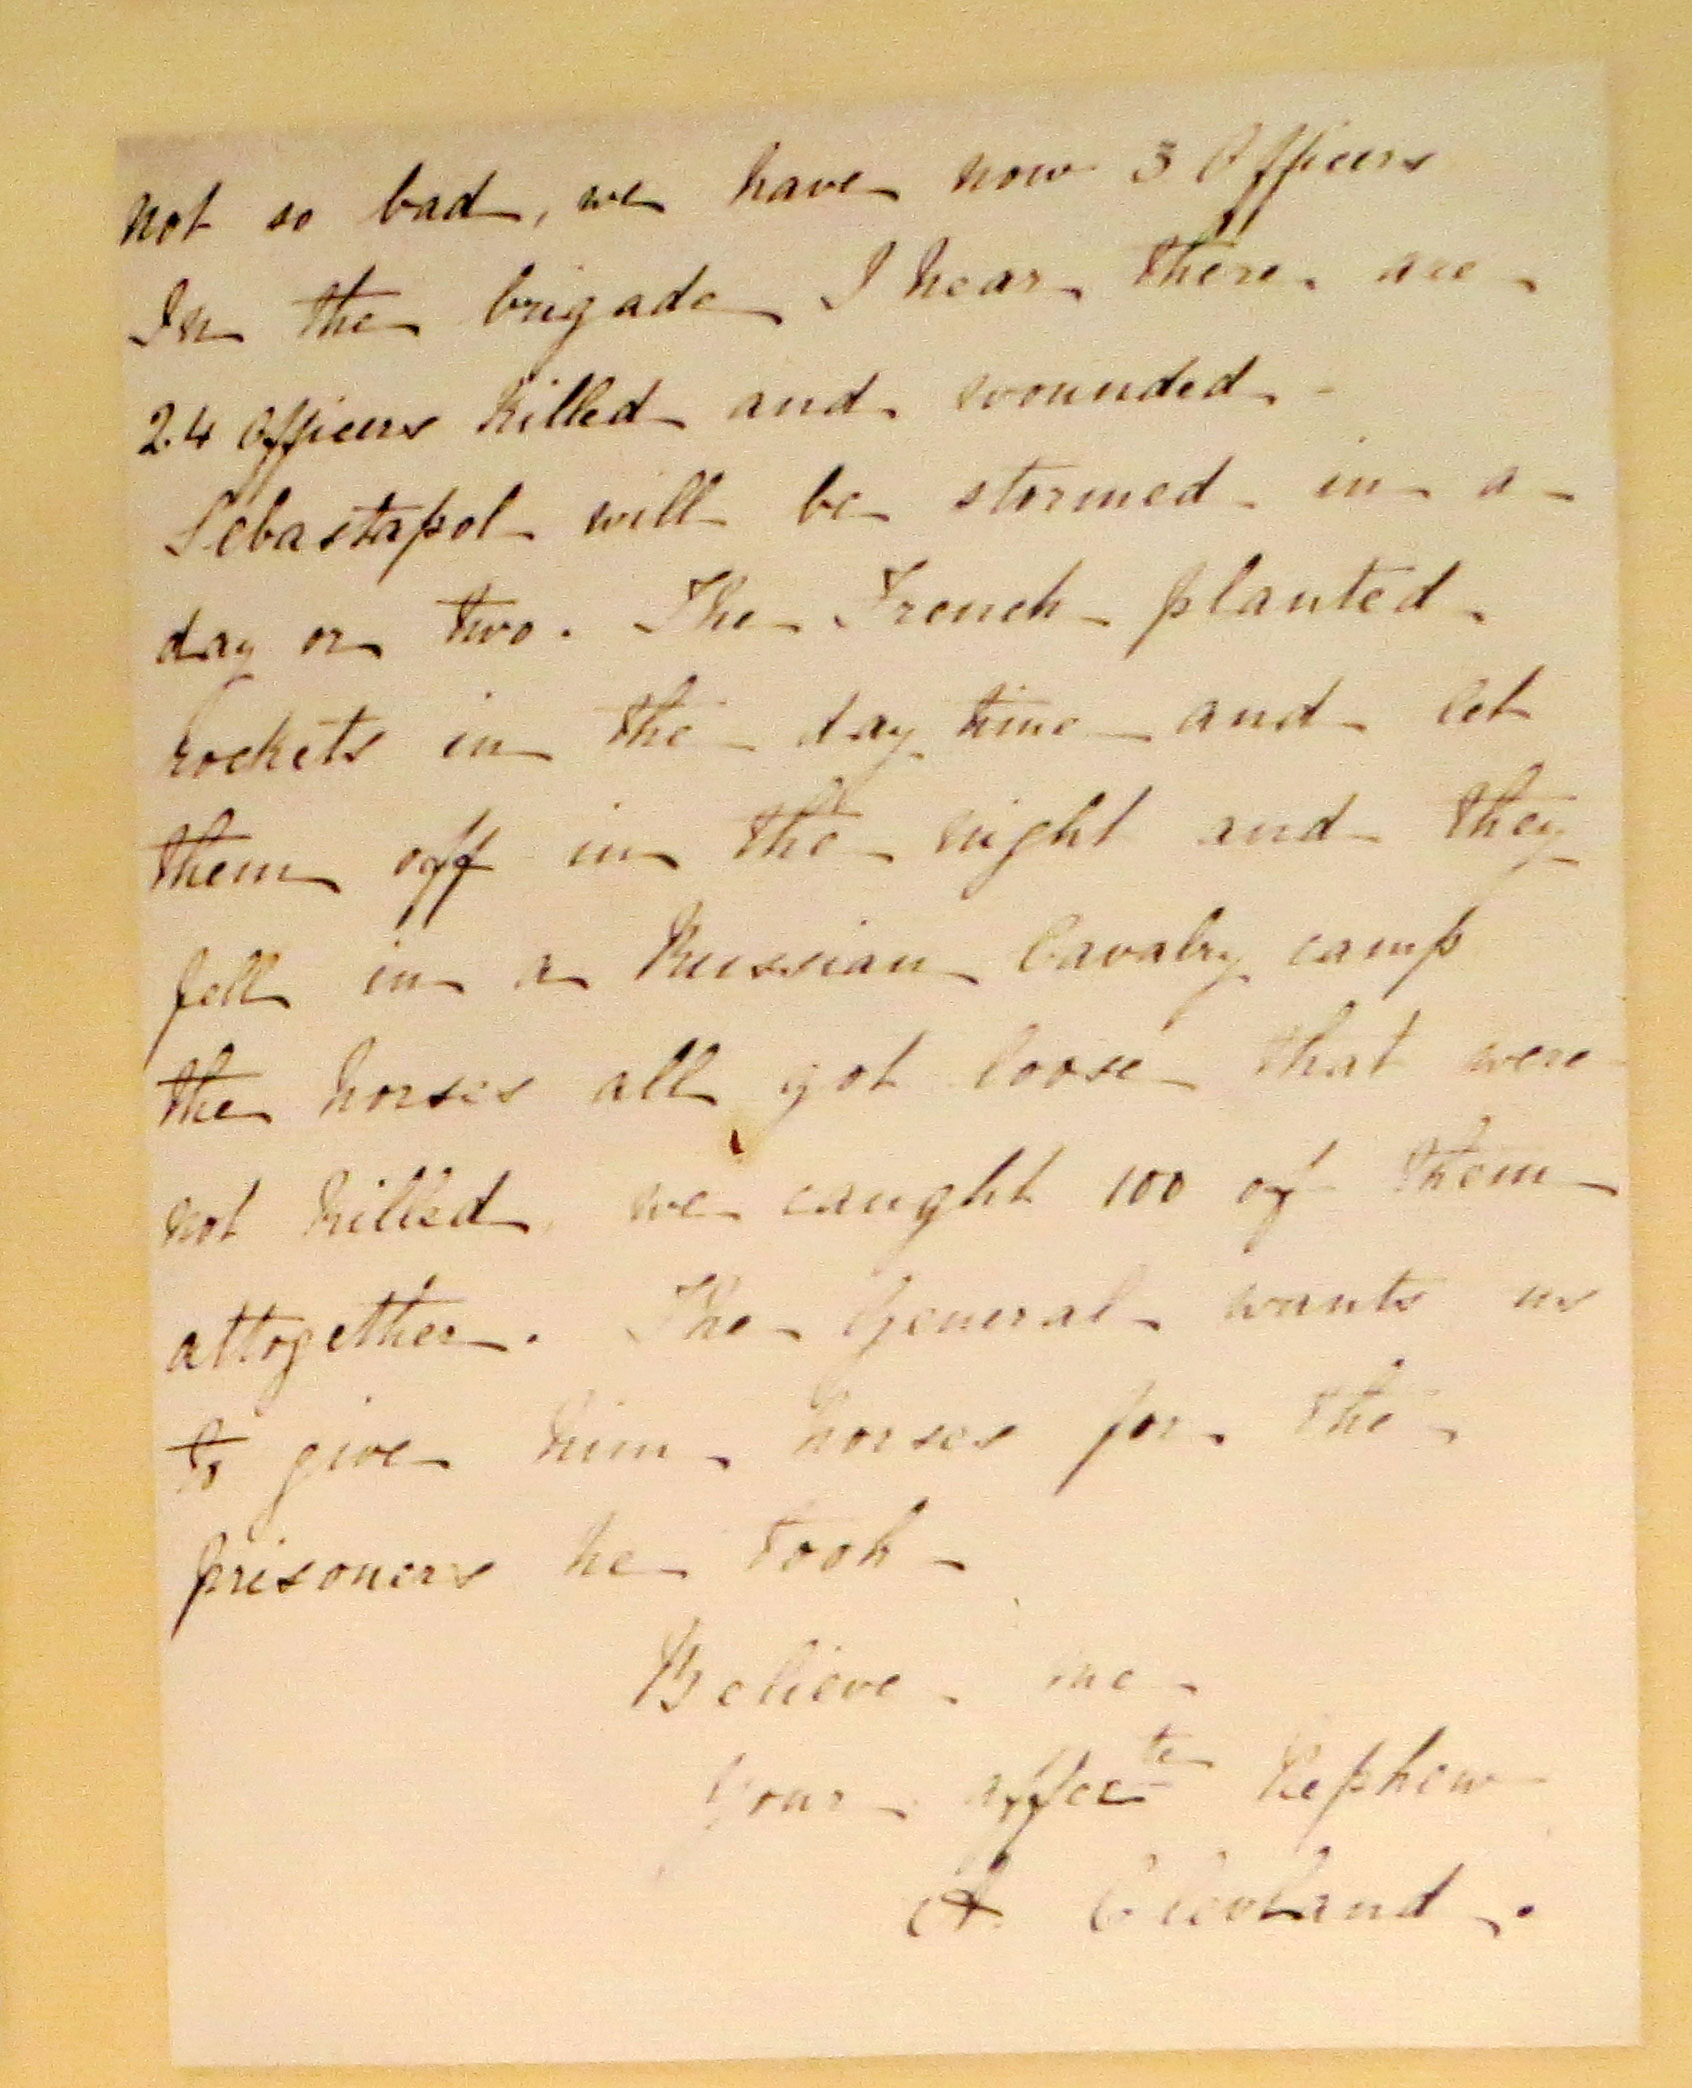 not so bad, we have now 3 Officers
In the brigade I hear there are
24 Officers killed and wounded -
Sebastapol will be stormed in a
day or two. The French planted
rockets in the day time and let
them off in the night and they
fell in a Russian Cavalry camp
the horses all got loose that were
not killed, we caught 100 of them
altogether. The General wants us
to give him horses for the
prisoners he took -
Believe me
Your affecte Nephew
A. Cleveland.